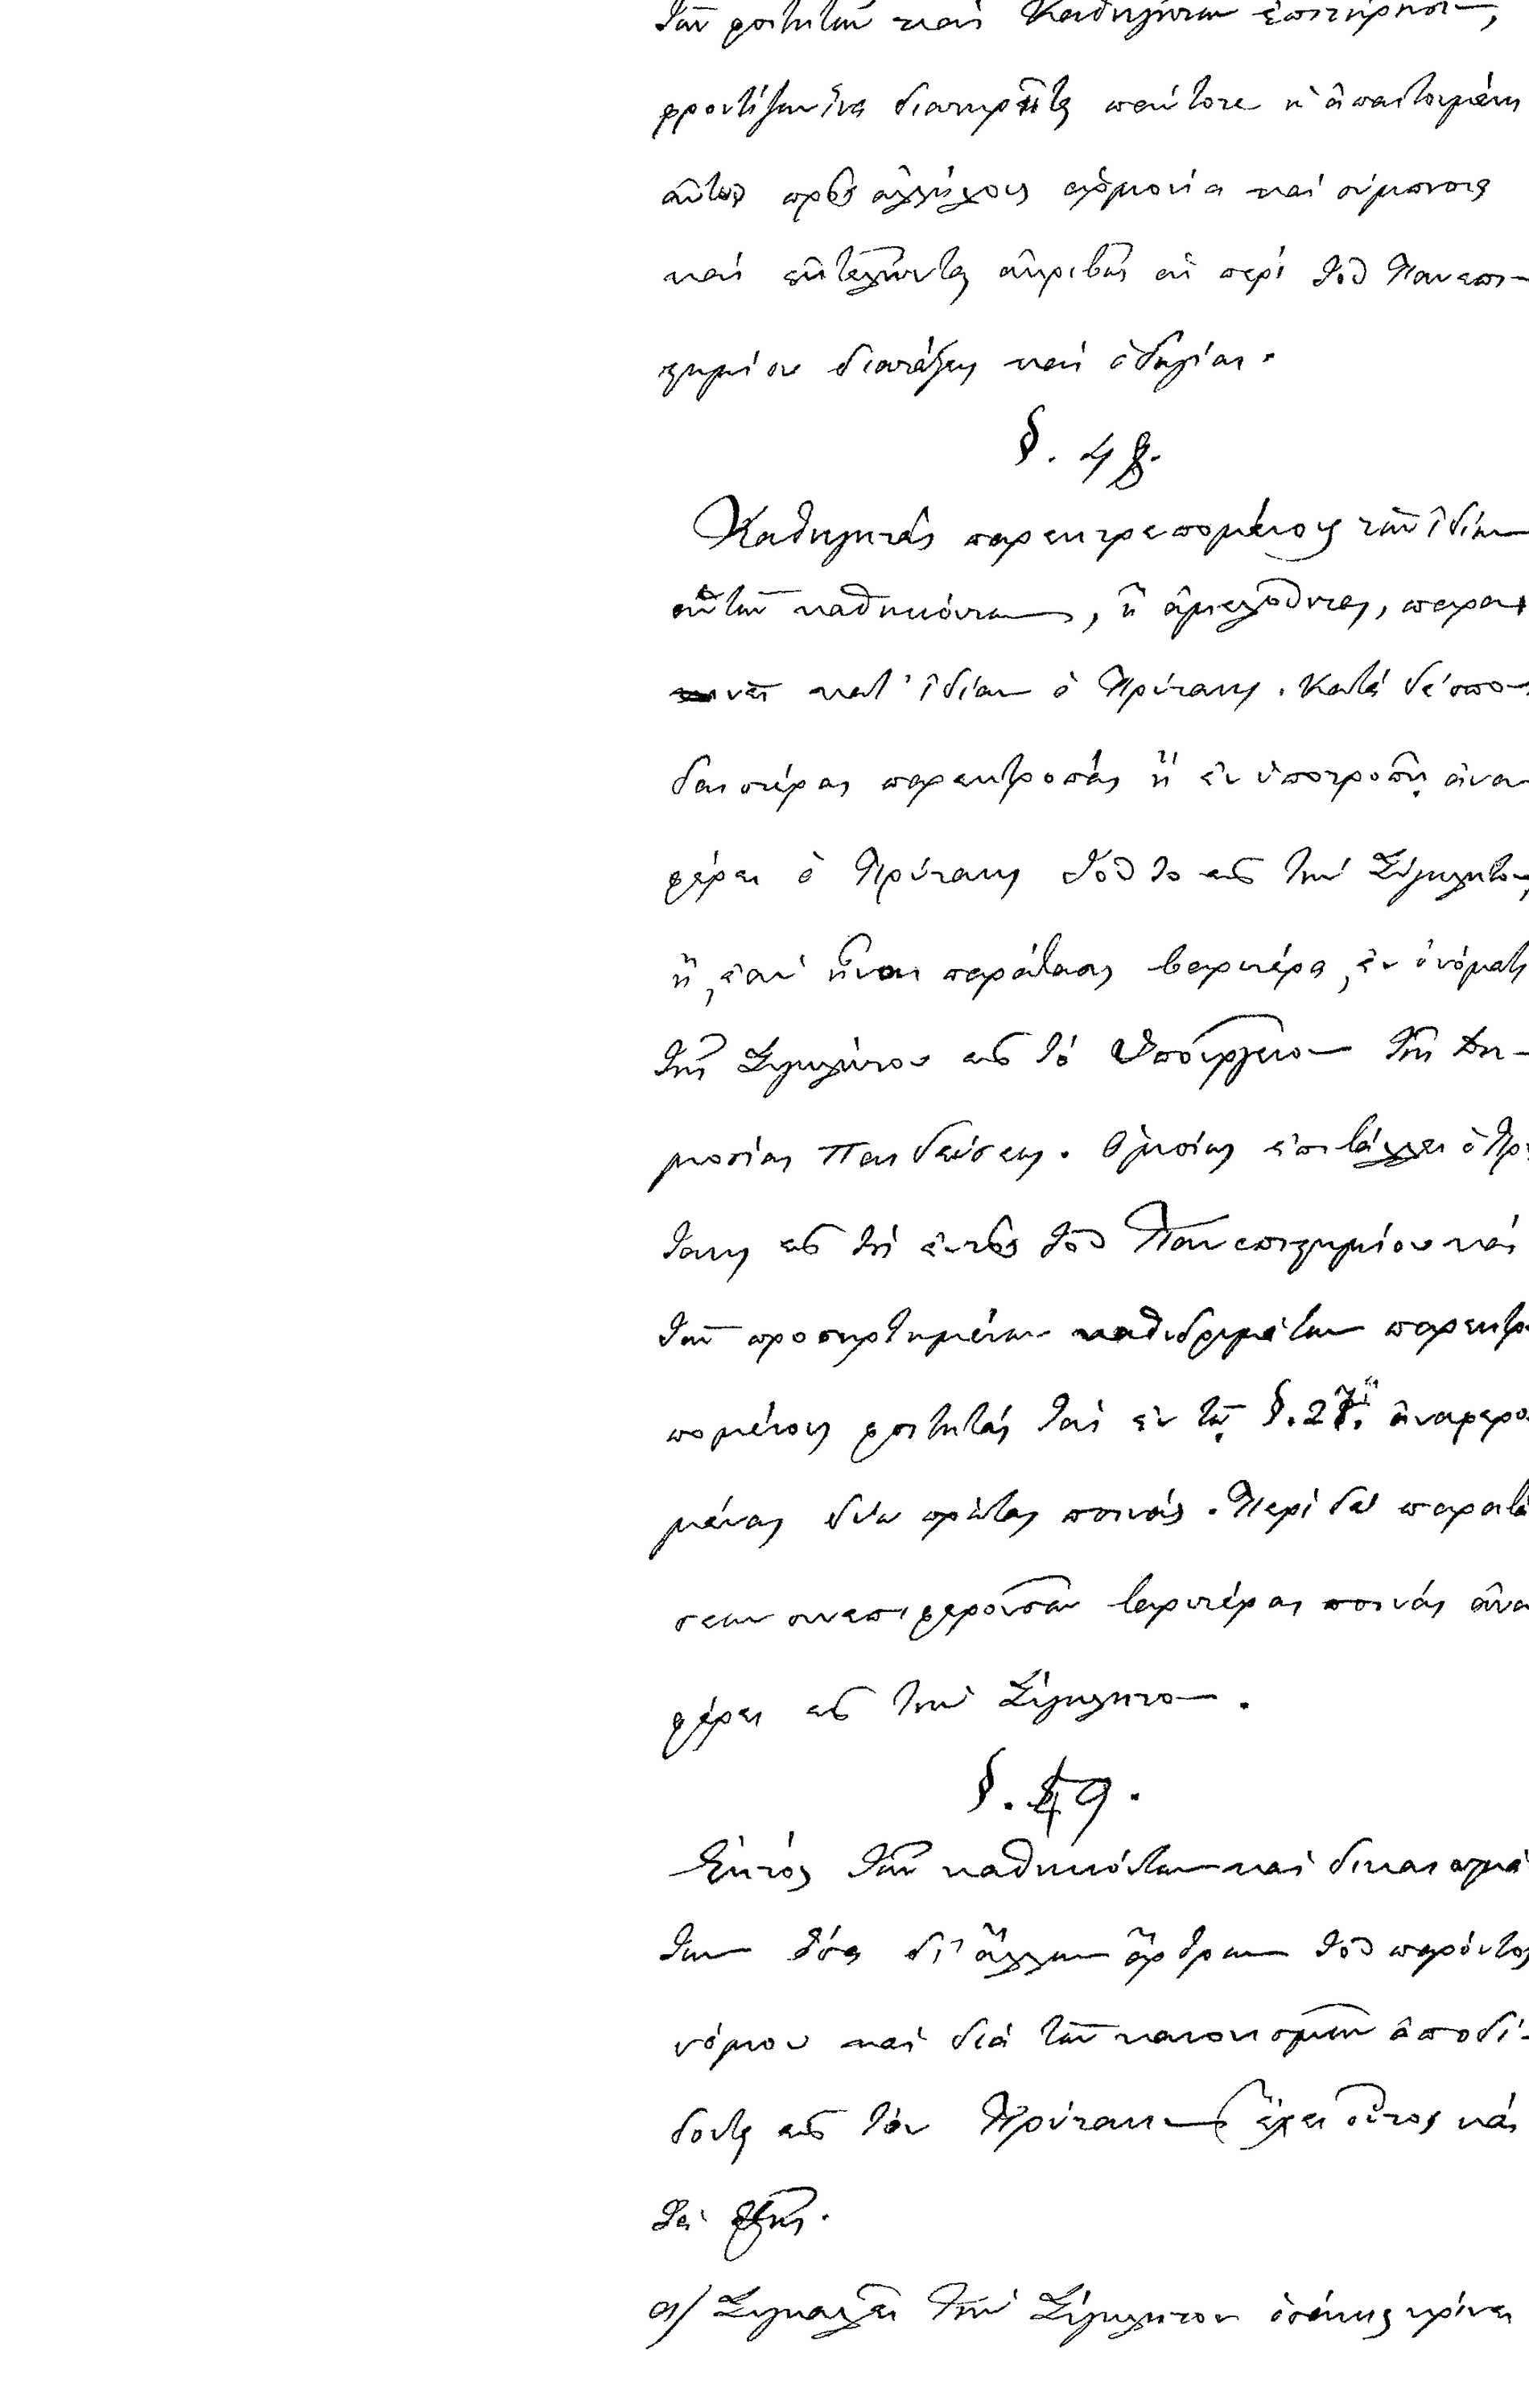 τῶν φοιτητῶν καὶ Καθηγητῶν ἐπιτήρησιν,
φροντίζων ἵνα διατηρῆται πάντοτε ἡ ἀπαιτουμένη
αὐτῶν πρὸς ἀλλήλους ἁρμονία καὶ σύμπνοια
καὶ ἐκτελῶνται ἀκριβῶς αἱ περὶ τοῦ Πανεπι-
στημίου διατάξεις καὶ ὁδηγίαι.
§. 48.
Καθηγητὰς παρεκτρεπομένους τῶν ἰδίων
αὐτῶν καθηκόντων, ἢ ἀμελοῦντας, παραι
νεῖ κατ' ἰδίαν ὁ Πρύτανις. Κατὰ δὲ σπου
δαιοτέρας παρεκτροπὰς ἢ ἐν ὑποτροπῇ ἀνα
φέρει ὁ Πρύτανις τοῦτο εἰς τὴν Σύγκλητον,
ἢ, ἐὰν ἦναι παράβασις βαρυτέρα, ἐν ὀνόματι
τῆς Συγκλήτου εἰς τὸ Ὑπουργεῖον τῆς Δη-
μοσίας Παιδεύσεως. Ὁμοίως ἐπιβάλλει ὁ Πρύ
τανις εἰς τοὺς ἐντὸς τοῦ Πανεπιστημίου καὶ
τῶν προσηρτημένων καθιδρυμάτων παρεκτρε
πομένους φοιτητὰς τὰς ἐν τῷ §. 27. ἀναφερο
μένας δύω πρώτας ποινάς. Περὶ δὲ παραβά
σεων συνεπιφερουσῶν βαρυτέρας ποινὰς ἀνα
φέρει εἰς τὴν Σύγκλητον.
§. 49.
Ἐκτὸς τῶν καθηκόντων καὶ δικαιωμά
των ὅσα δι' ἄλλων ἄρθρων τοῦ παρόντος
νόμου καὶ διὰ τῶν κανονισμῶν ἀποδί-
δονται εἰς τὸν Πρύτανιν ἔχει οὗτος καὶ
τὰ ἑξῆς.
α) Συγκαλεῖ τὴν Σύγκλητον ὁσάκις κρίνει